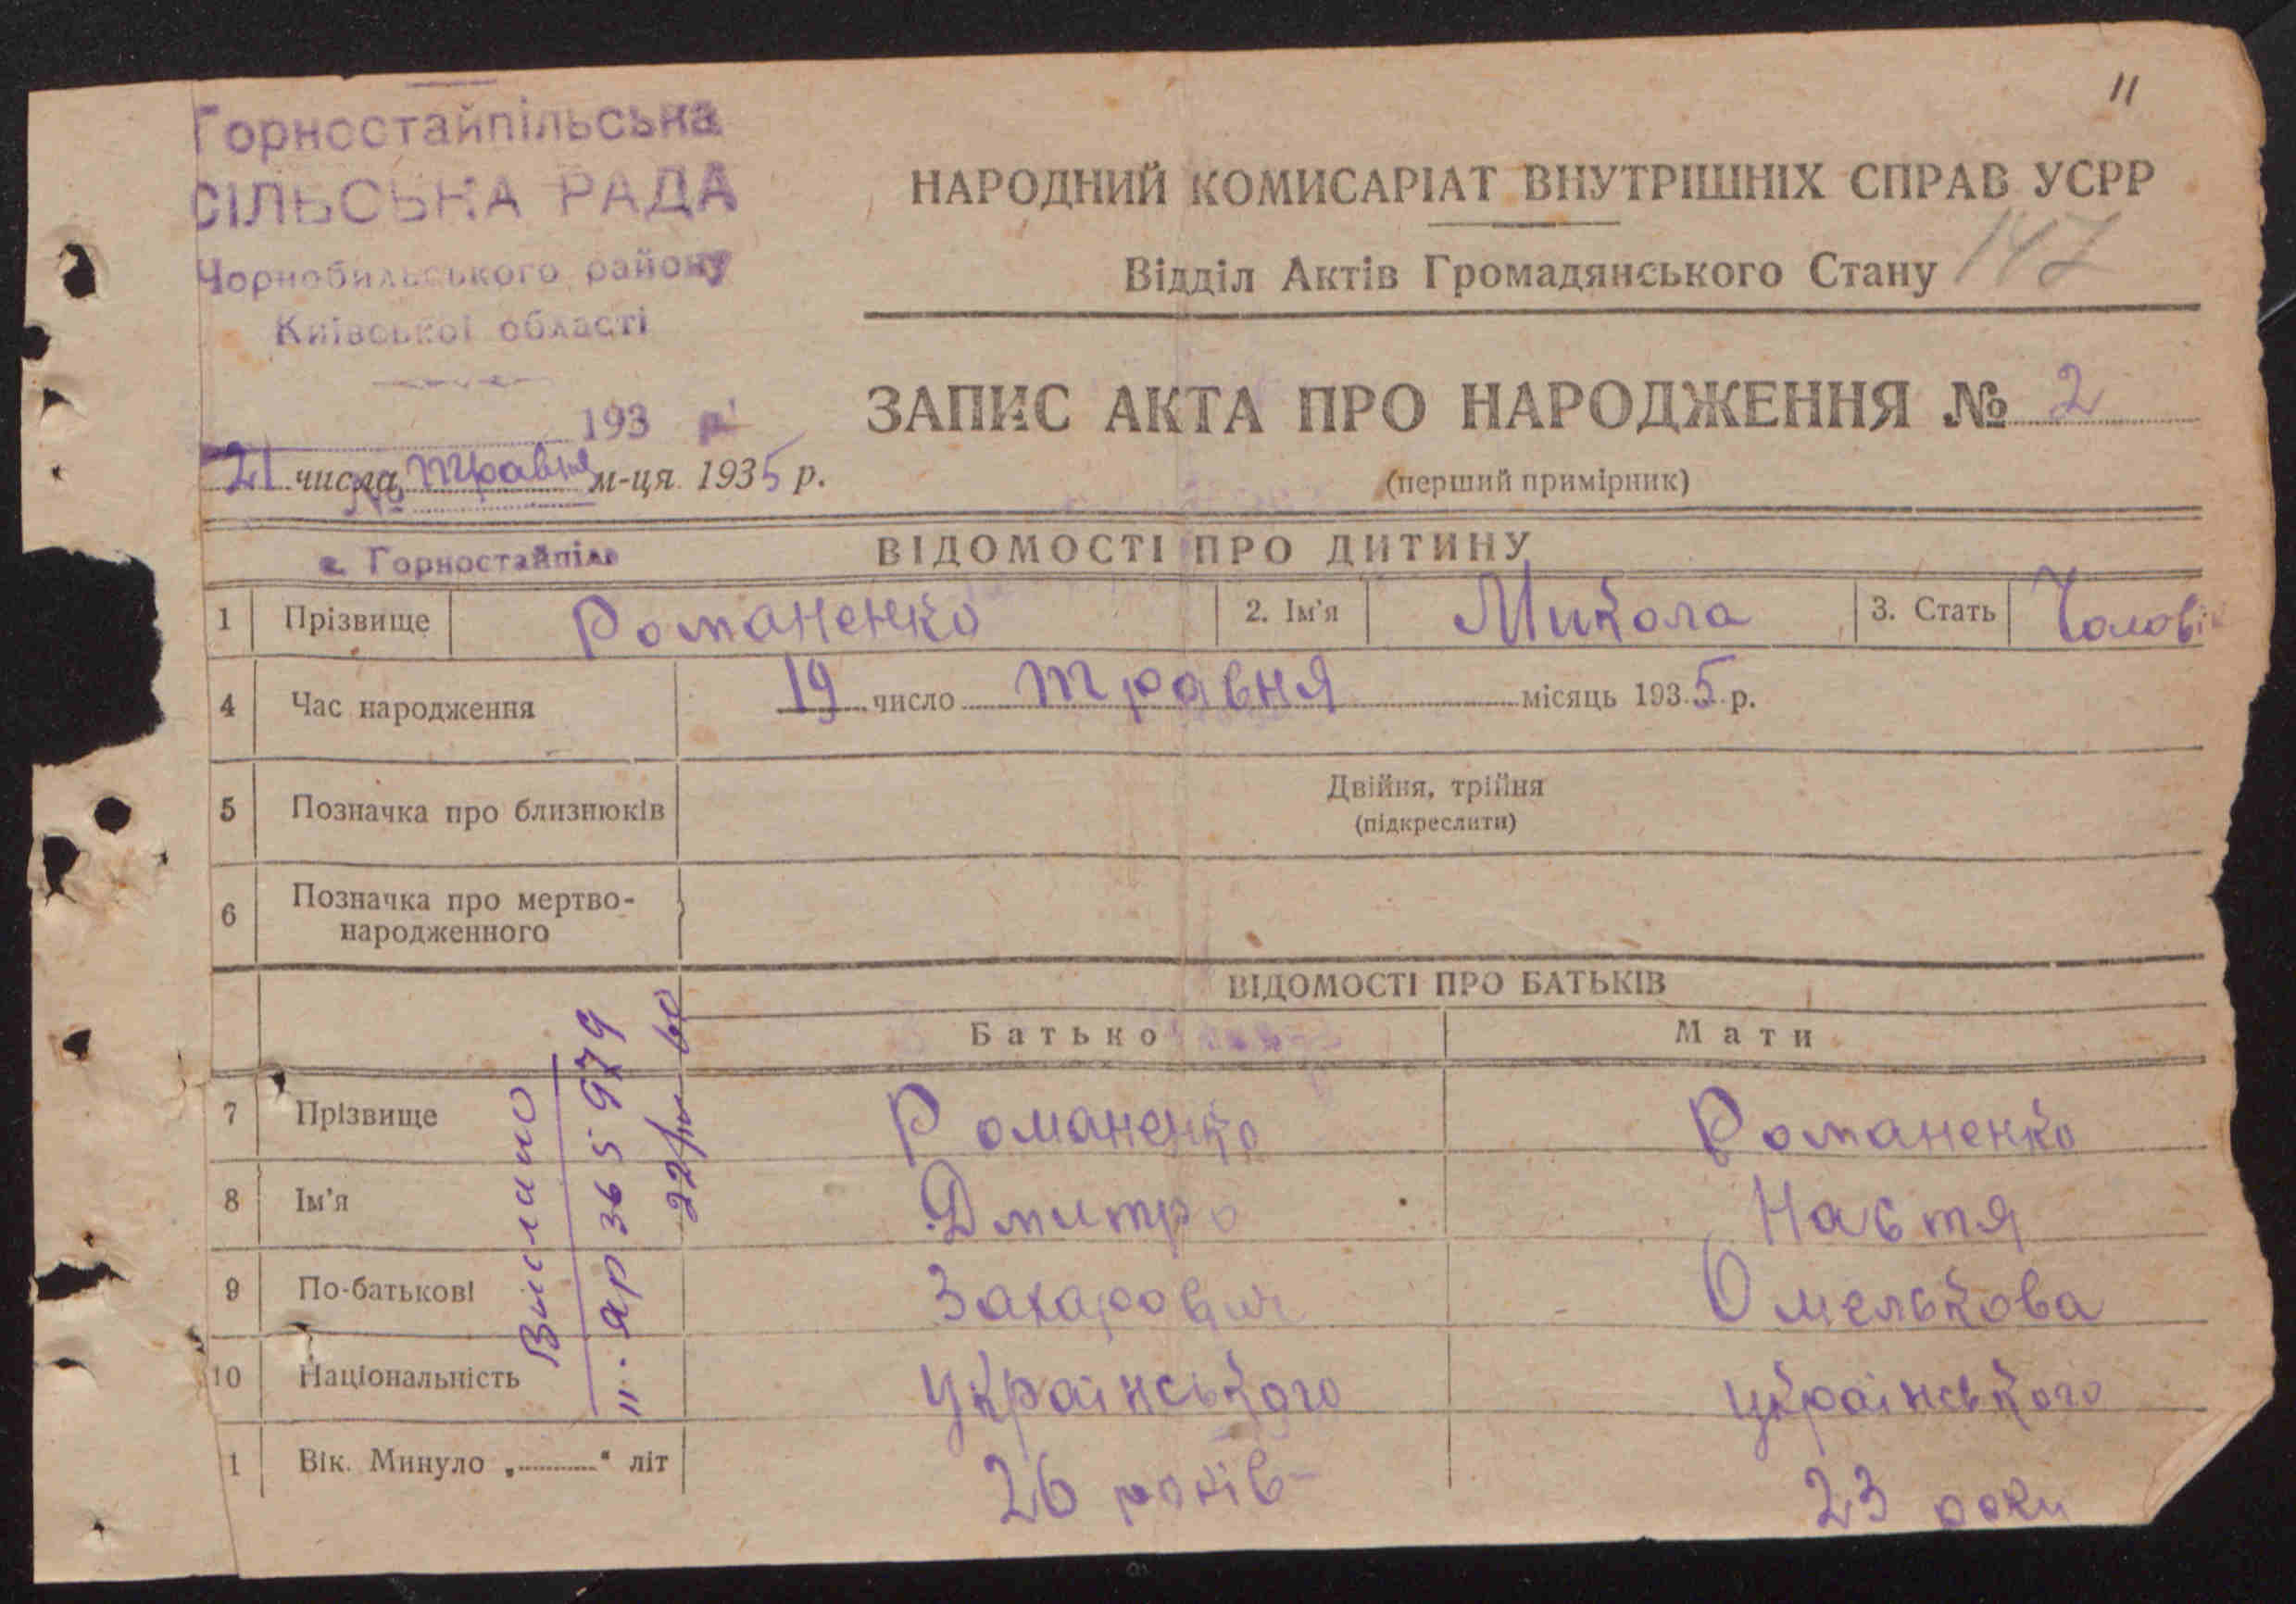 11
Горностайпільська
СІЛЬСЬКА РАДА
Чорнобильського району
Київської області
193 р.
№
с. Горностайпіль
НАРОДНИЙ КОМИСАРІАТ ВНУТРІШНІХ СПРАВ УСРР
Відділ Актів Громадянського Стану 147
ЗАПИС АКТА ПРО НАРОДЖЕННЯ № 2
(перший примірник)
21 числа травня м-ця 1935 р.
ВІДОМОСТІ ПРО ДИТИНУ
1 Прізвище Романенко 2. Ім'я Микола 3. Стать Чолові
4 Час народження 19 число травня місяць 1935 р.
5 Позначка про близнюків Двійня, трійня
(підкреслити)
6 Позначка про мертво-
народженного
ВІДОМОСТІ ПРО БАТЬКІВ
Батько Мати
7 Прізвище Романенко Романенко
8 Ім'я Дмитро Настя
9 По-батькові Захарович Омелькова
10 Національність українського українського
1 Вік. Минуло „ “ літ 26 років 23 роки
Вислано
365979